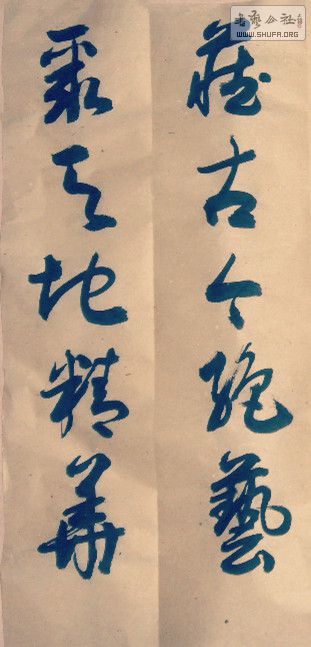 藏古今絶藝
聚天地精華
書藝公社
WWW.SHUFA.ORG